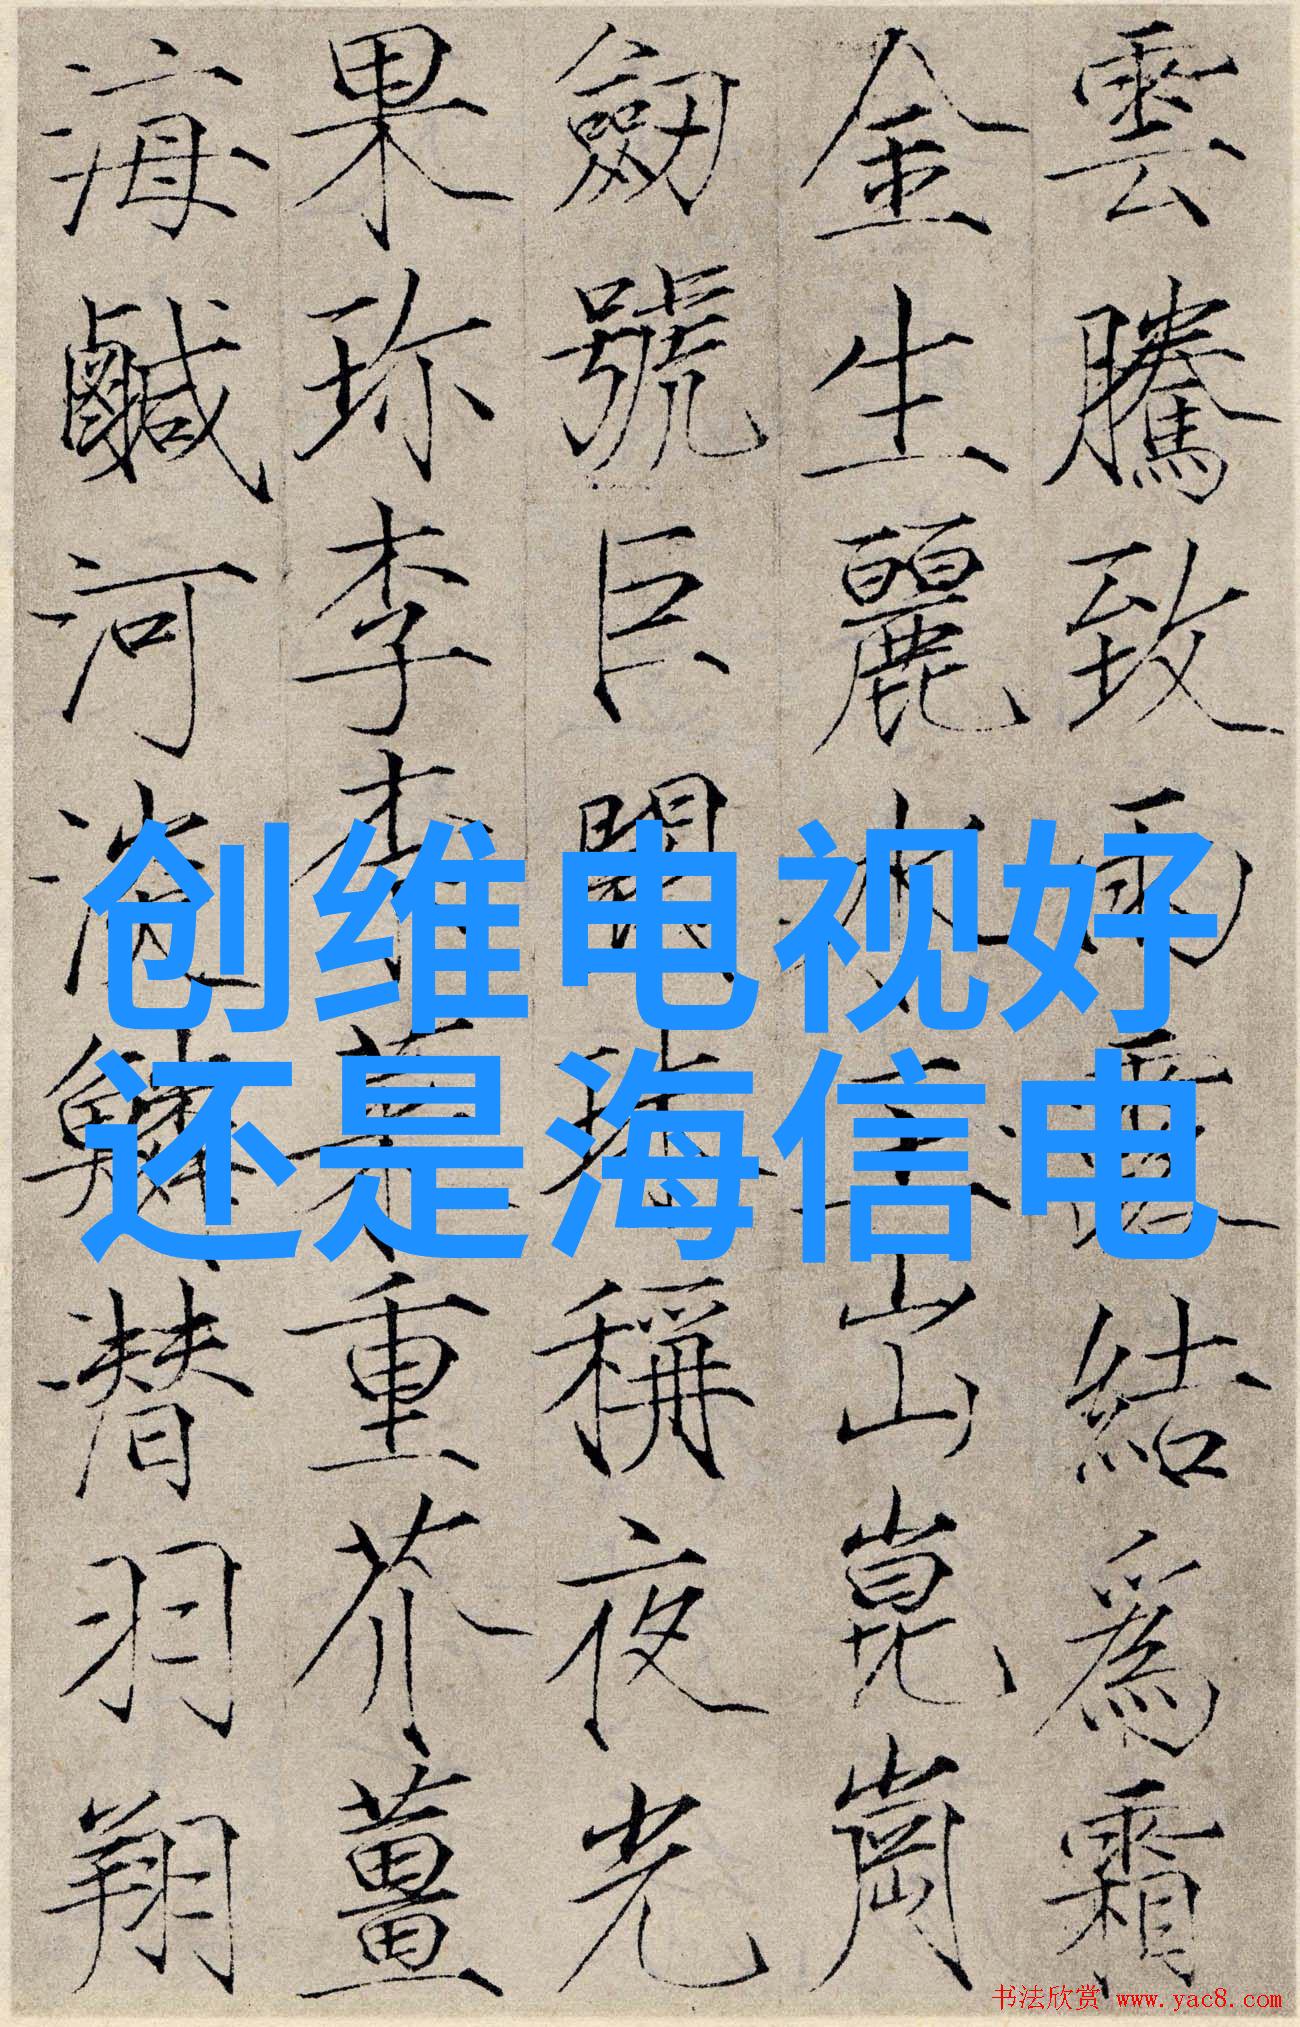 雲騰致雨露結爲霜
金生麗水玉出崑崗
劒號巨闕珠稱夜光
果珎李柰菜重芥薑
海鹹河淡鱗潜羽翔
创维电视好
还是海信电
书法欣赏 www.yac8.com